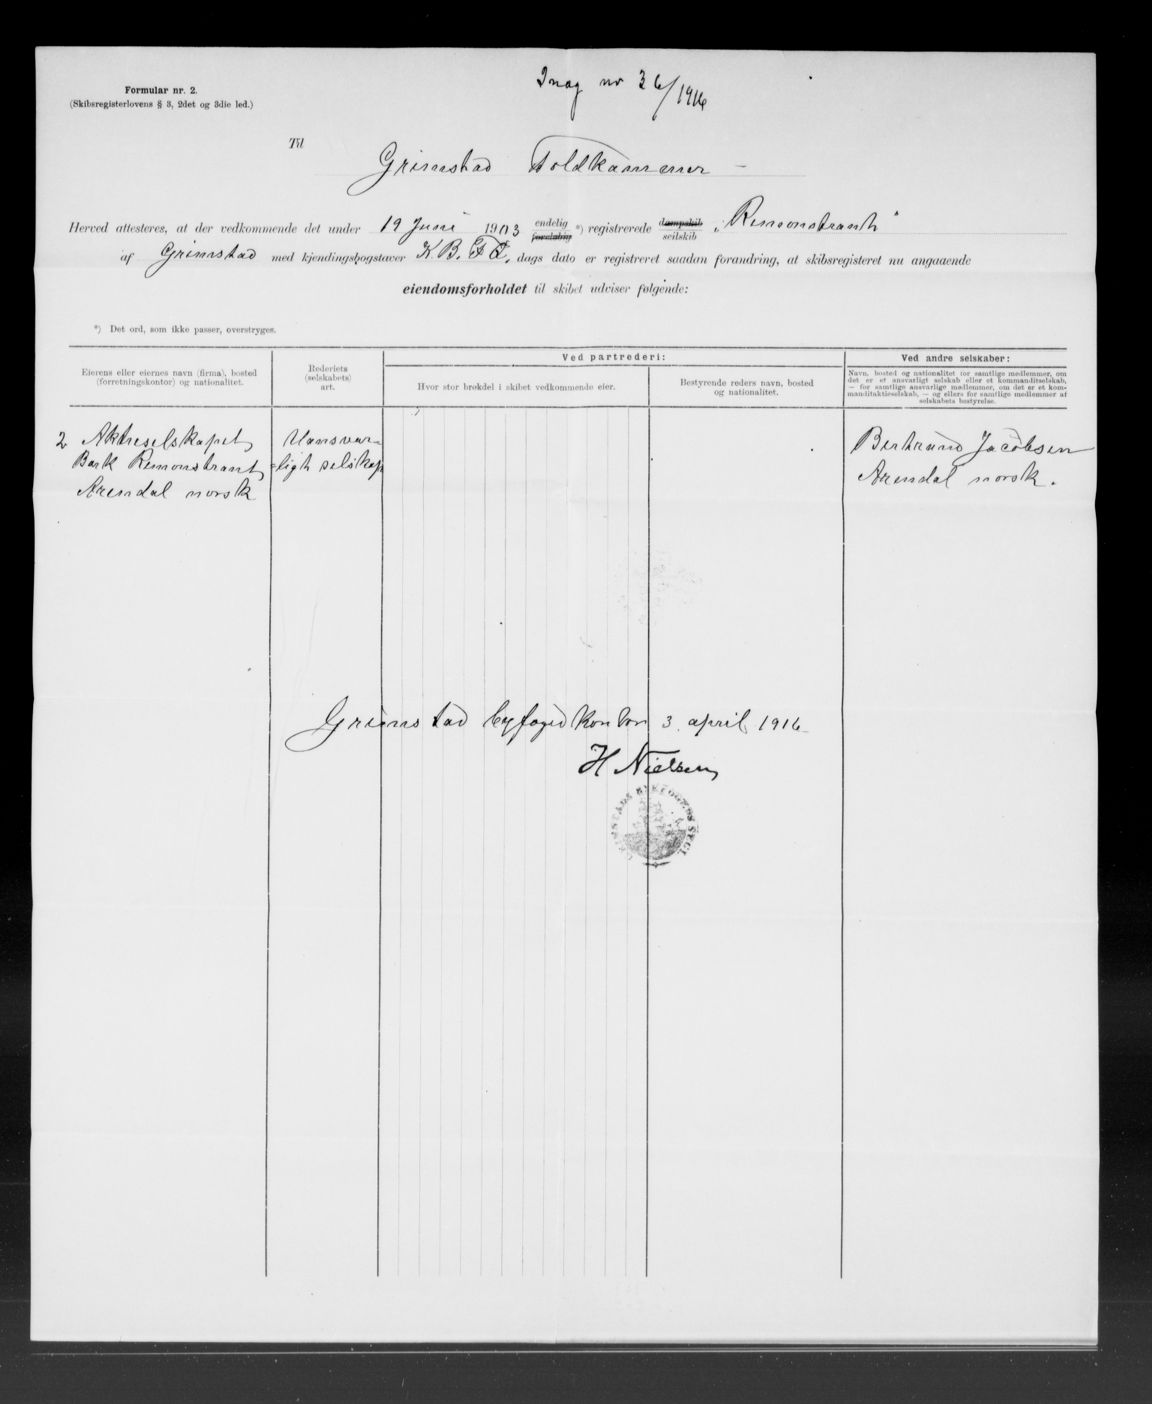 Inag nr 36/1916
Formular nr. 2.
(Skibsregisterlovens § 3, 2det og 3die led.)
Til
Grimstad Toldkammer
Herved attesteres, at der vedkommende det under 19 Juni 1903 endelig foreløbig *) registrerede dampskib seilskib „Remonstrant"
af Grimstad med kjendingsbogstaver K.B. dags dato er registreret saadan forandring, at skibsregisteret nu angaaende
eiendomsforholdet til skibet udviser følgende:
*) Det ord, som ikke passer, overstryges.
Eierens eller eiernes navn (firma), bosted
(forretningskontor) og nationalitet.
Rederiets
(selskabets)
art.
Ved partrederi:
Hvor stor brøkdel i skibet vedkommende eier.
Bestyrende reders navn, bosted
og nationalitet.
Ved andre selskaber:
Navn, bosted og nationalitet for samtlige medlemmer, om
det er et ansvarligt selskab eller et kommanditselskab,
— for samtlige ansvarlige medlemmer, om det er et kom-
manditaktieselskab, — og ellers for samtlige medlemmer af
selskabets bestyrelse.
2 Aktieselskapet
Bark Remonstrant
Arendal norsk
Uansvar-
ligt selskap
Bertrand Jacobsen
Arendal norsk.
Grimstad byfogedkontor 3 april 1916
H Nielsen
GRIMSTADS BYFOGEDS SEGL